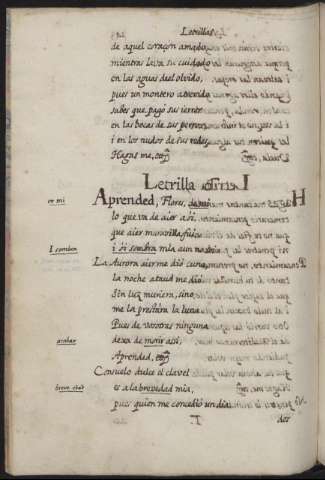 Letrillas
de aquel coraçon amado,
mientras laua su cuidado
en las aguas del oluido,
pues un montero atreuido
sabes que pagó sus ierros
en las bocas de sus perros
i en los nudos de sus redes.
Hagas me, etc.
Letrilla
en mi
Aprended, Flores,
lo que va de aier a oi,
que aier marauilla fui,
I sombra
i oi sombra mia aun no
La Aurora aier me dió cuna,
la noche ataud me dió
Sin luz muriera, sino
me la prestára la luna
Pues de vosotras ninguna
acabar
dexa de morir assi,
Aprended, etc.
Consuelo dulce el clavel
breve edad
es a la brevedad mia,
pues quien me concedió un dia
dos